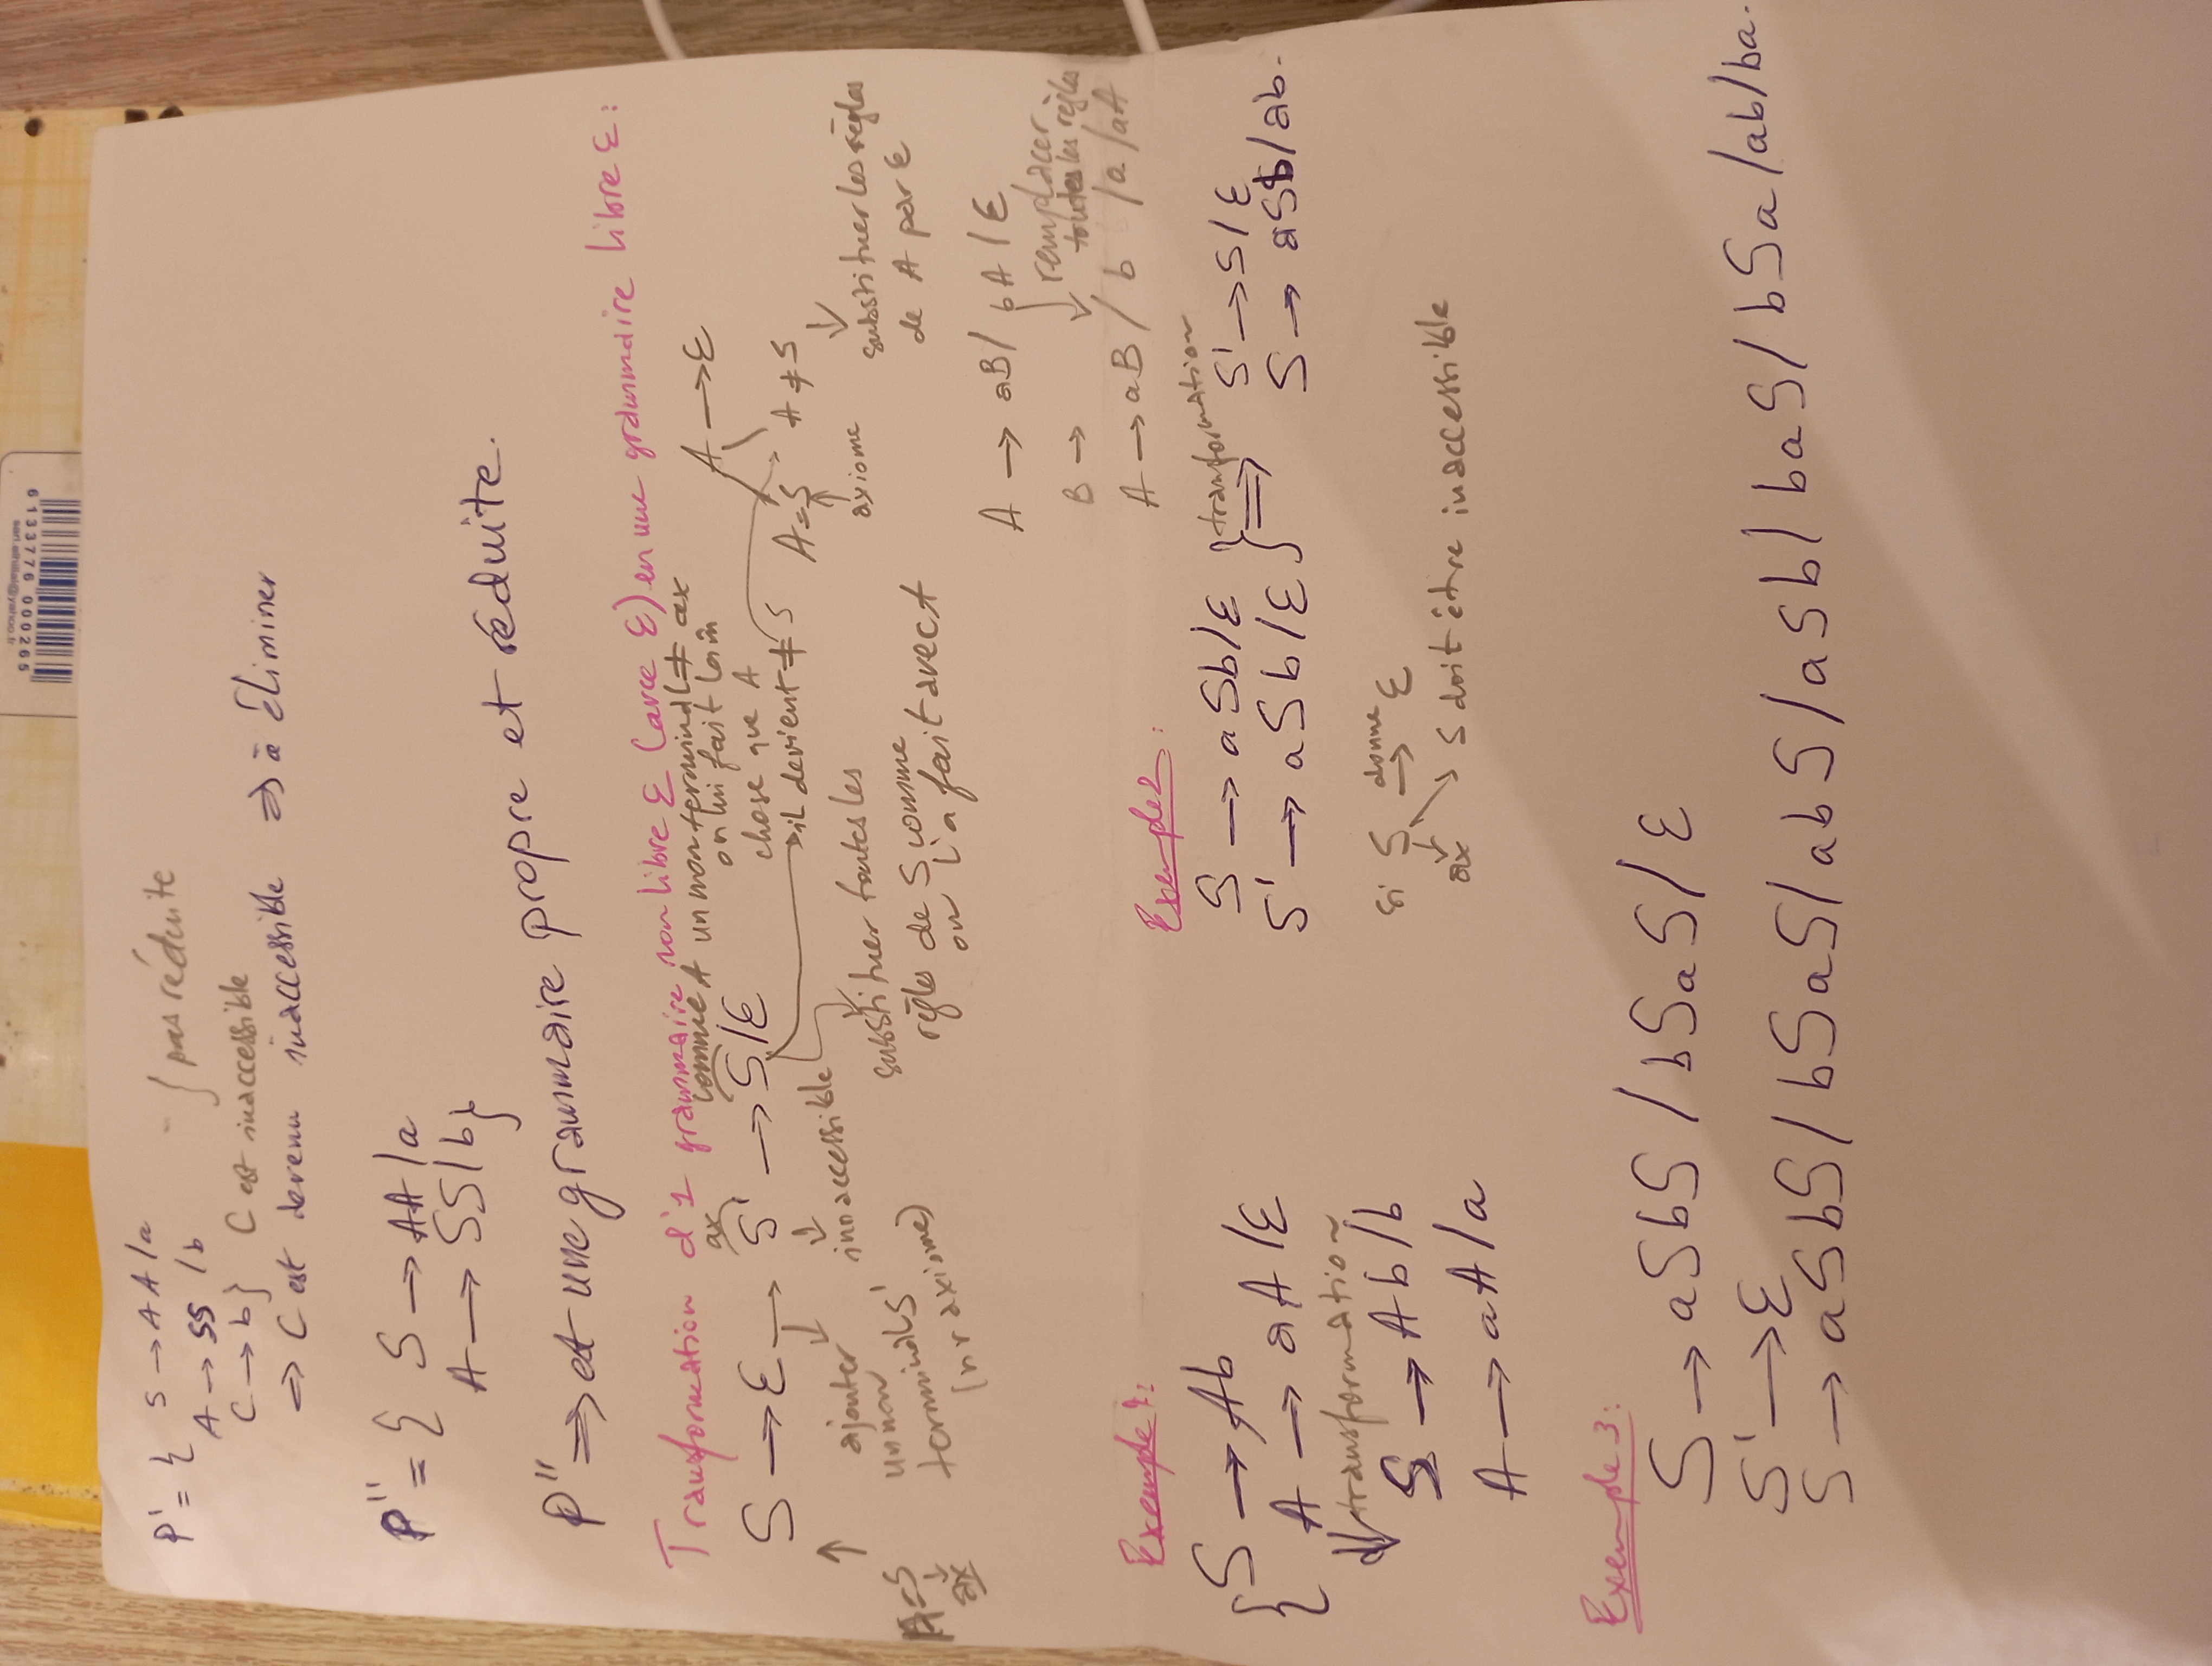 sarl.elhillal@yahoo.fr
6133776 000265
P' = { S → AA/a
A → SS /b } pas réduite
C → b} C est inaccessible
⇒ C est devenu inaccessible ⇒ à éliminer
P'' = { S → AA/a
A → SS/b}
P'' ⇒ est une grammaire propre et réduite.
Transformation d'1 grammaire non libre ε (avec ε) en une grammaire libre ε:
S → ε → S' → S/ε
ax
comme A un non terminal ≠ ax
on lui fait la m̂
chose que A
il devient ≠ S
A → ε
A=S A ≠ S
axiome
substituer les règles
de A par ε
A=S
ax
ajouter
un non
terminal S'
(nv axiome)
innaccessible
substituer toutes les
règles de S comme
on l'a fait avec A
A → aB/ bA / ε
remplacer
toutes les règles
B →
A → aB / b /a /aA
Exemple 1:
{ S → Ab
A → aA/ε
⇓ transformation
S → Ab/b
A → aA/a
Exemple 2:
S → aSb/ε
S' → aSb/ε } transformation ⇒
S' → S/ε
S → aSb/ab.
Si S donne → ε
ax
S doit être inaccessible
Exemple 3:
S → aSbS / bSaS / ε
S' → ε
S → aSbS / bSaS / abS / aSb / baS / bSa /ab/ba.